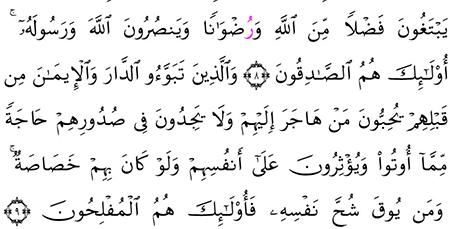 يَبْتَغُونَ فَضْلًا مِّنَ ٱللَّهِ وَرُضْوَٰنًا وَيَنصُرُونَ ٱللَّهَ وَرَسُولَهُۥٓ ۚ
أُوْلَٰٓئِكَ هُمُ ٱلصَّٰدِقُونَ ﴿٨﴾ وَٱلَّذِينَ تَبَوَّءُو ٱلدَّارَ وَٱلْإِيمَٰنَ مِن
قَبْلِهِمْ يُحِبُّونَ مَنْ هَاجَرَ إِلَيْهِمْ وَلَا يَجِدُونَ فِى صُدُورِهِمْ حَاجَةً
مِّمَّآ أُوتُوا۟ وَيُؤْثِرُونَ عَلَىٰٓ أَنفُسِهِمْ وَلَوْ كَانَ بِهِمْ خَصَاصَةٌ ۚ
وَمَن يُوقَ شُحَّ نَفْسِهِۦ فَأُوْلَٰٓئِكَ هُمُ ٱلْمُفْلِحُونَ ﴿٩﴾